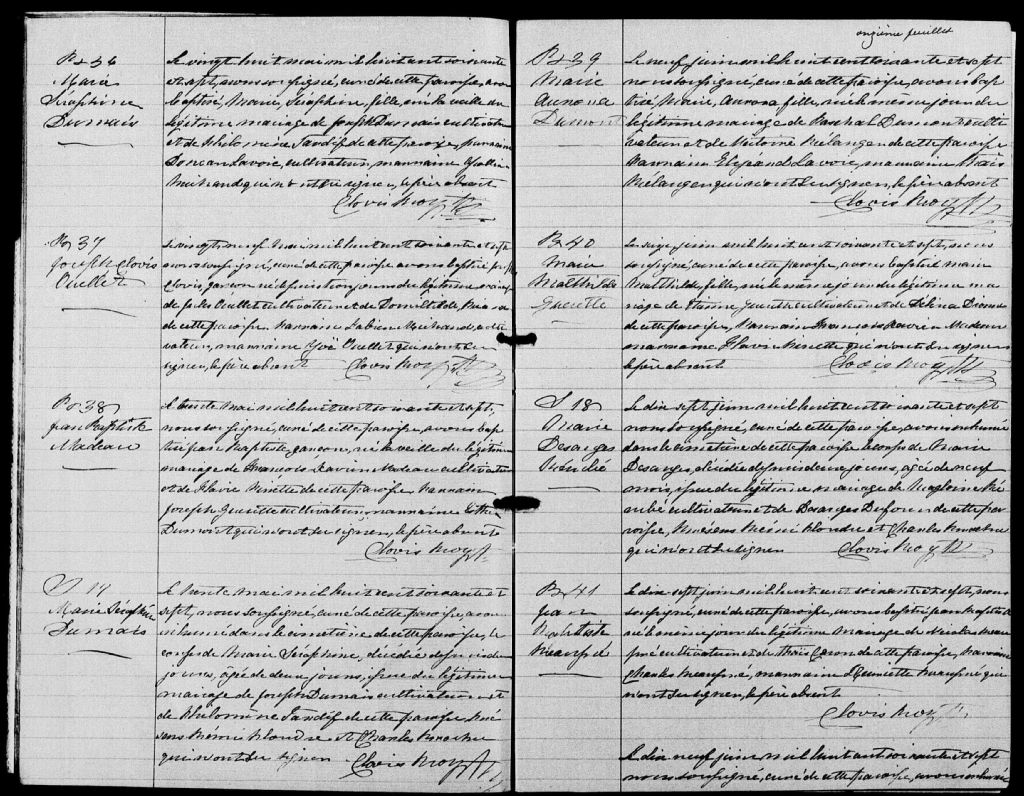 B 36
Marie
Séraphine
Dumais
Le vingt huit mai mil huit cent soixante
et sept, nous soussigné, curé de cette paroisse, avons
baptisé, Marie, Séraphine, fille, née la veille du
légitime mariage de Joseph Dumais cultivateur
et de Philomène de cette paroisse, parrain
Lavoie, cultivateur, marraine
Michaud qui n'ont su signer, le père absent
Clovis Roy Ptr
B 37
Joseph Clovis
Ouellet
Le vingt neuf mai mil huit cent soixante et sept
nous soussigné, curé de cette paroisse avons baptisé Jos.
Clovis, garçon né du légitime mariage
de Jules Ouellet cultivateur et de
de cette paroisse. Parrain Michaud, culti
vateur, marraine Zoé Ouellet qui n'ont su
signer, le père absent Clovis Roy Ptr
B 38
Jean Baptiste
Nadeau
Le trente mai mil huit cent soixante et sept,
nous soussigné, curé de cette paroisse, avons bap
tisé Jean Baptiste, garçon, né la veille du légitime
mariage de François Xavier Nadeau cultivateur
et de Flavie de cette paroisse. Parrain
Joseph Guérette cultivateur, marraine
Dumont qui n'ont su signer, le père absent
Clovis Roy Ptr
S 14
Marie Séraphine
Dumais
Le trente mai mil huit cent soixante et
sept, nous soussigné, curé de cette paroisse, avons
inhumé dans le cimetière de cette paroisse, le
corps de Marie Séraphine, décédée depuis deux
jours, âgée de deux jours, issue du légitime
mariage de Joseph Dumais cultivateur et
de Philomène de cette paroisse. Pré
sens Rémi Blondre et Charles
qui n'ont su signer Clovis Roy Ptr
onzième feuillet
B 39
Marie
Aurora
Dumont
Le neuf juin mil huit cent soixante et sept
nous soussigné, curé de cette paroisse, avons bap
tisé Marie, Aurora, fille, née le même jour du
légitime mariage de Paschal Dumont culti
vateur et de Victoire Bélanger de cette paroisse
Parrain Elzéard Lavoie, marraine
Bélanger qui n'ont su signer, le père absent
Clovis Roy Ptr
B 40
Marie
Mathilde
Guérette
Le seize, juin mil huit cent soixante et sept, nous
soussigné, curé de cette paroisse, avons baptisé Marie
Mathilde, fille, née le même jour du légitime ma
riage de Etienne Guérette cultivateur et de Dionne
de cette paroisse, Parrain François Xavier Nadeau
marraine Flavie qui n'ont su signer
le père absent Clovis Roy Ptr
S 18
Marie
Desanges
Le dix sept juin mil huit cent soixante et sept
nous soussigné, curé de cette paroisse, avons inhumé
dans le cimetière de cette paroisse le corps de Marie
Desanges, décédée depuis deux jours, âgée de neuf
mois, issue du légitime mariage de Magloire Bé
rubé cultivateur et de Desanges Dufour de cette pa
roisse, Présens Rémi Blondre et Charles
qui n'ont su signer Clovis Roy Ptr
B 41
Jean
Baptiste
Le dix sept juin mil huit cent soixante et sept, nous
soussigné, curé de cette paroisse, avons baptisé Jean Baptiste
né le même jour du légitime mariage de Nicolas
cultivateur et de Caron de cette paroisse, Parrain
Charles marraine Henriette qui
n'ont su signer, le père absent
Clovis Roy Ptr
Le dix neuf juin mil huit cent soixante et sept
nous soussigné, curé de cette paroisse, avons inhumé